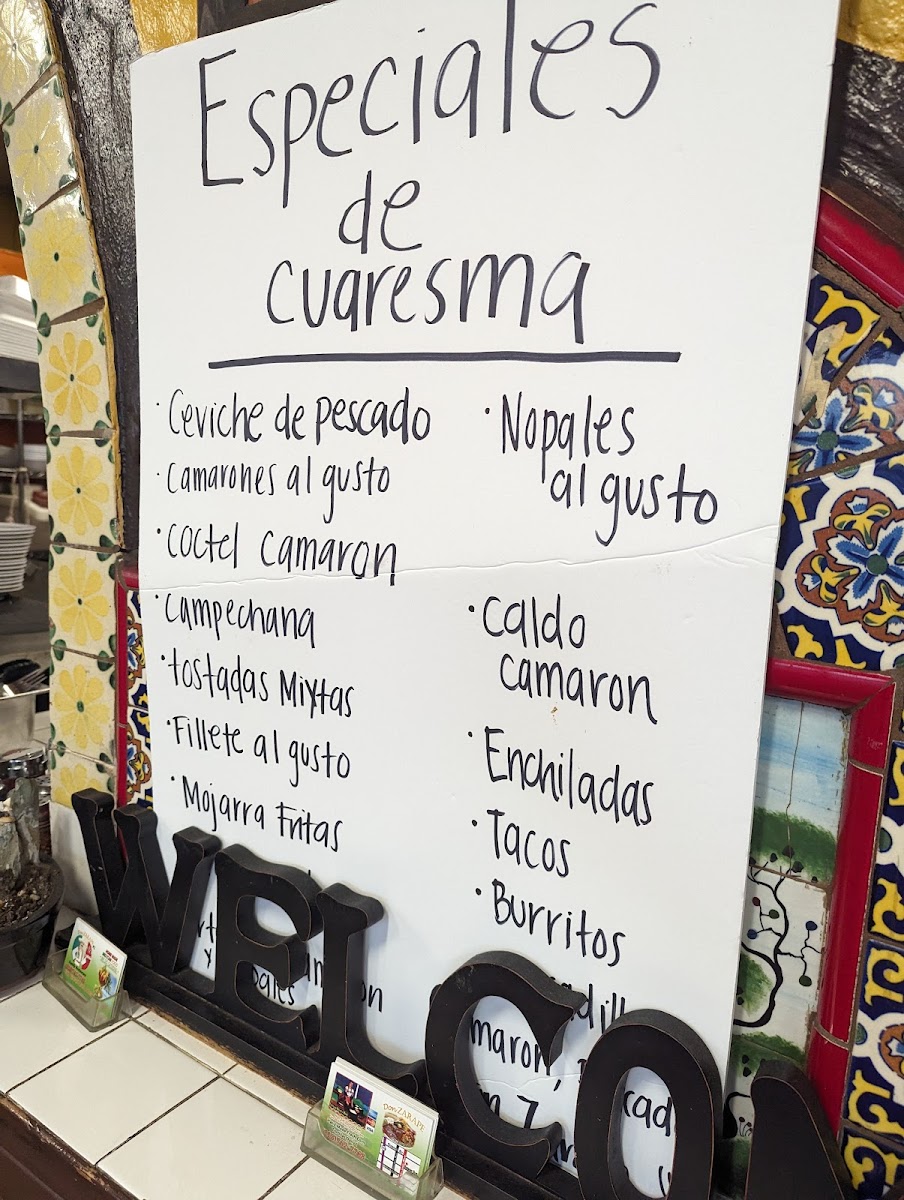 Especiales
de
cuaresma
· Ceviche de pescado
· Camarones al gusto
· Coctel camaron
· Campechana
· tostadas Mixtas
· Fillete al gusto
· Mojarra Fritas
y
· Nopales
al gusto
· Caldo
camaron
· Enchiladas
· Tacos
· Burritos
WELCO
Don ZARAPE